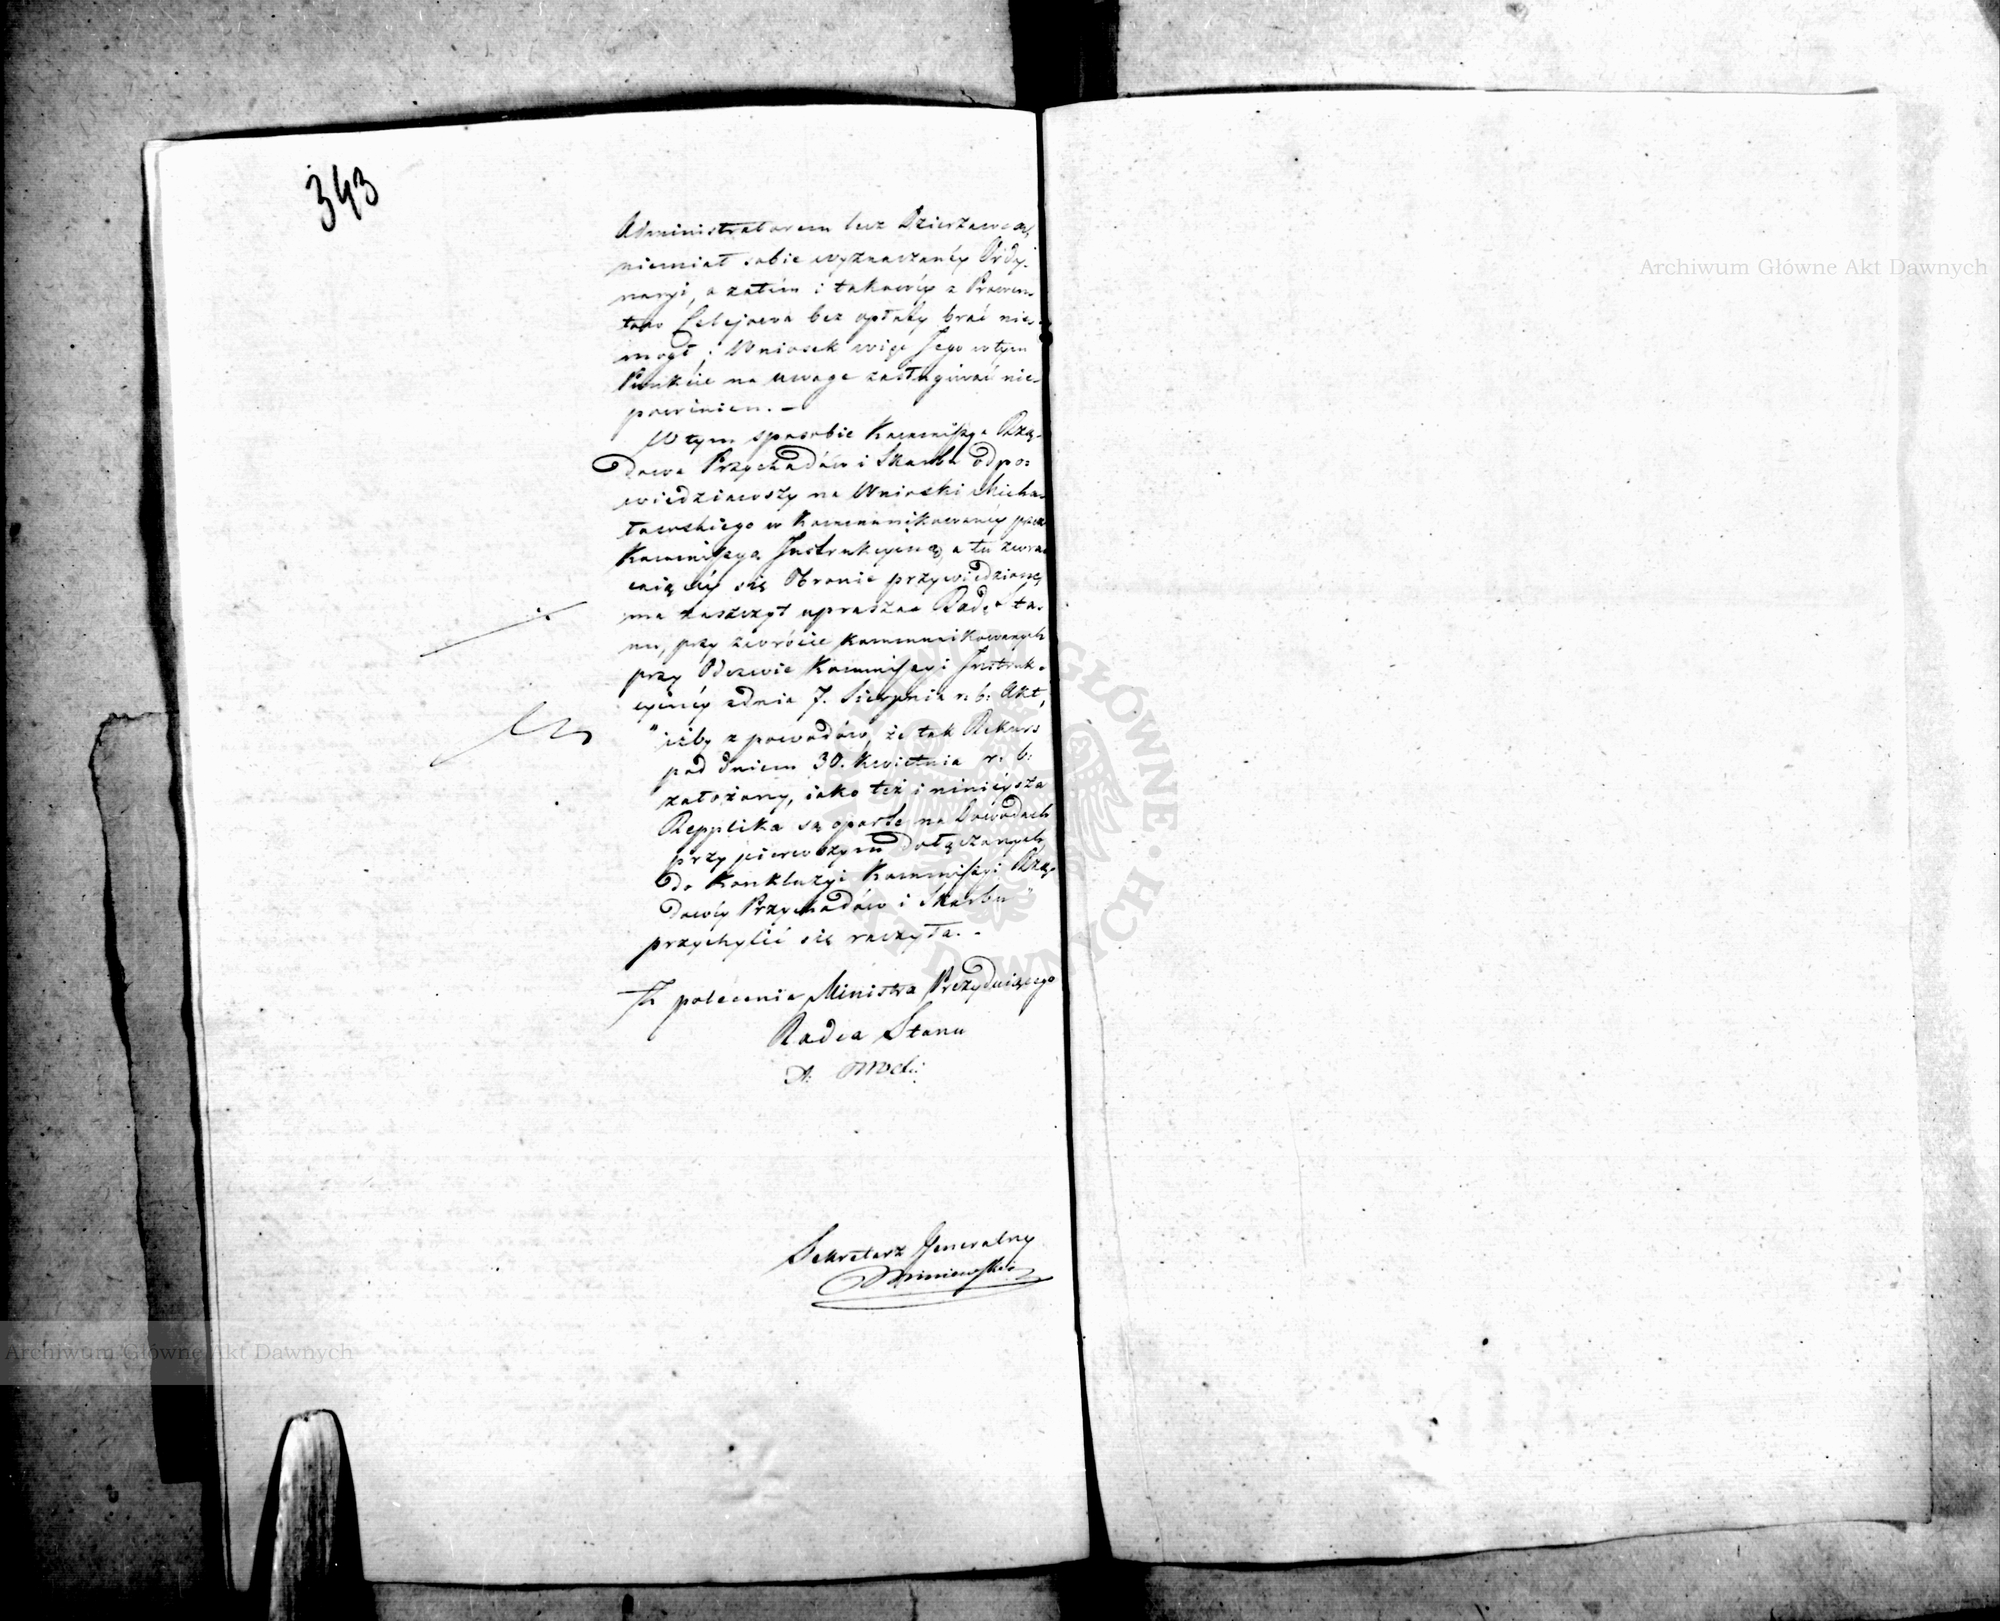 343
Administratorem lecz Dzierżawcą,
niemiał sobie wyznaczonéy Ordy-
naryi, a zatém i takowéy z Prowen-
tow bez opłaty brać nie-
mogł; Wniosek więc Jego w tym
Punkcie na uwagę zasługiwać nie-
powinien. –
W tym sposobie Kommissya Rzą-
dowa Przychodów i Skarbu odpo-
wiedziawszy na Wnioski Micha-
łowskiego w Kommunikowanéy przez
Kommissyą Instrukcyiną, a tu zwra-
caiącéy się Obronie przywiedzione,
ma zaszczyt upraszać Radę Sta-
nu, przy zwrócie kommunikowanych
przy Odezwie Kommissyi Instruk-
cyinéy z dnia 7. Sierpnia r: b: Akt,
"iżby z powodów, że tak Rekurs
pod dniem 30. Kwietnia r: b:
założony, iako też i ninieysza
Repplika są oparte na Dowodach
przy pierwszym dołączonych,
do Konkluzyi Kommissyi Rzą-
dowéy Przychodów i Skarbu"
przychylić się raczyła. -
Z polecenia Ministra Prezyduiącego
Radca Stanu
Sekretarz Generalny
Archiwum Główne Akt Dawnych
Archiwum Główne Akt Dawnych
ARCHIWUM GŁÓWNE AKT DAWNYCH